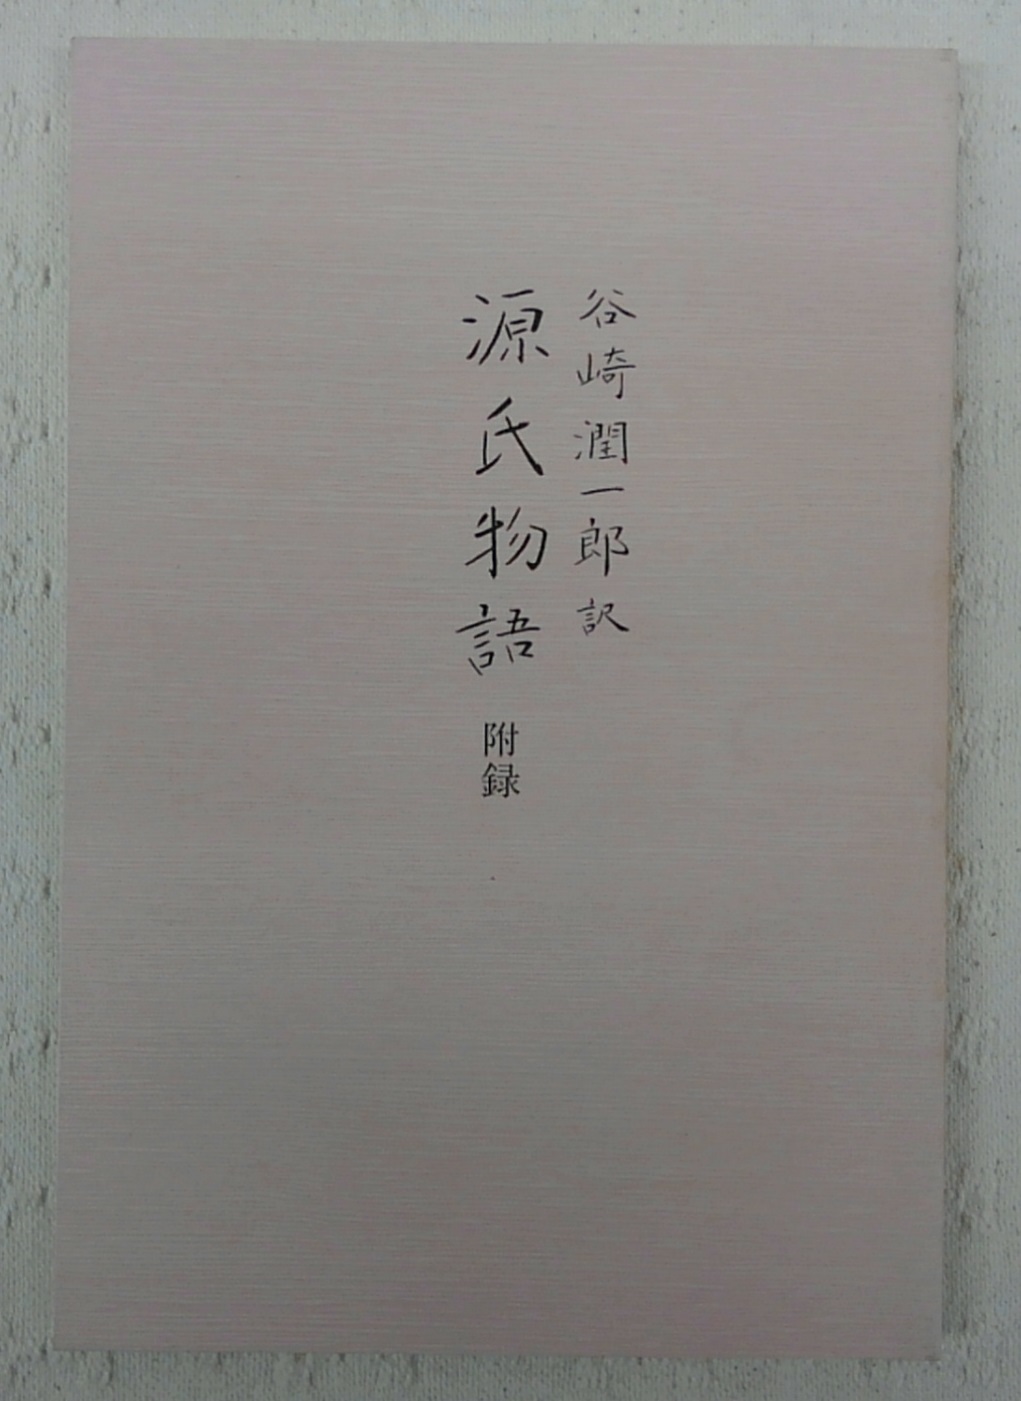 谷崎潤一郎訳
源氏物語 附録